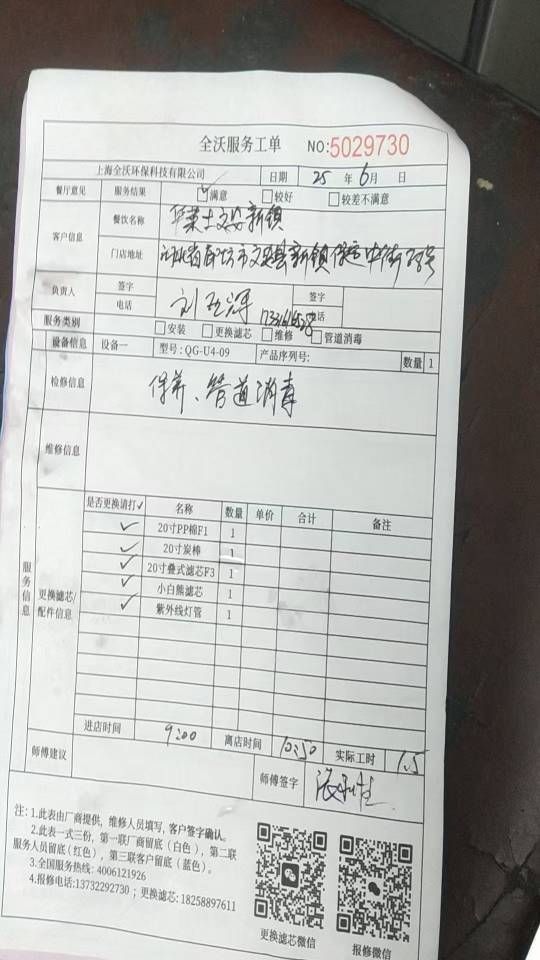 全沃服务工单 NO:5029730
上海全沃环保科技有限公司 日期 25 年 6 月 日
餐厅意见 服务结果 满意 较好 较差不满意
客户信息 餐饮名称 华莱士文安新镇
门店地址 河北省廊坊市文安县新镇保定中街
负责人 签字 签字
电话 电话
服务类别 安装 更换滤芯 维修 管道消毒
设备信息 设备一 型号: QG-U4-09 产品序列号: 数量 1
检修信息 保养、管道消毒
维修信息
服务信息
更换滤芯/配件信息
是否更换请打✓ 名称 数量 单价 合计 备注
✓ 20寸PP棉F1 1
✓ 20寸炭棒 1
✓ 20寸叠式滤芯F3 1
✓ 小白熊滤芯 1
✓ 紫外线灯管 1
进店时间 9:00 离店时间 10:50 实际工时 1.5
师傅建议 师傅签字
注: 1.此表由厂商提供，维修人员填写, 客户签字确认。
2.此表一式三份，第一联厂商留底（白色），第二联
服务人员留底(红色)，第三联客户留底（蓝色）。
3.全国服务热线: 4006121926
4.报修电话:13732292730；更换滤芯: 18258897611
更换滤芯微信 报修微信